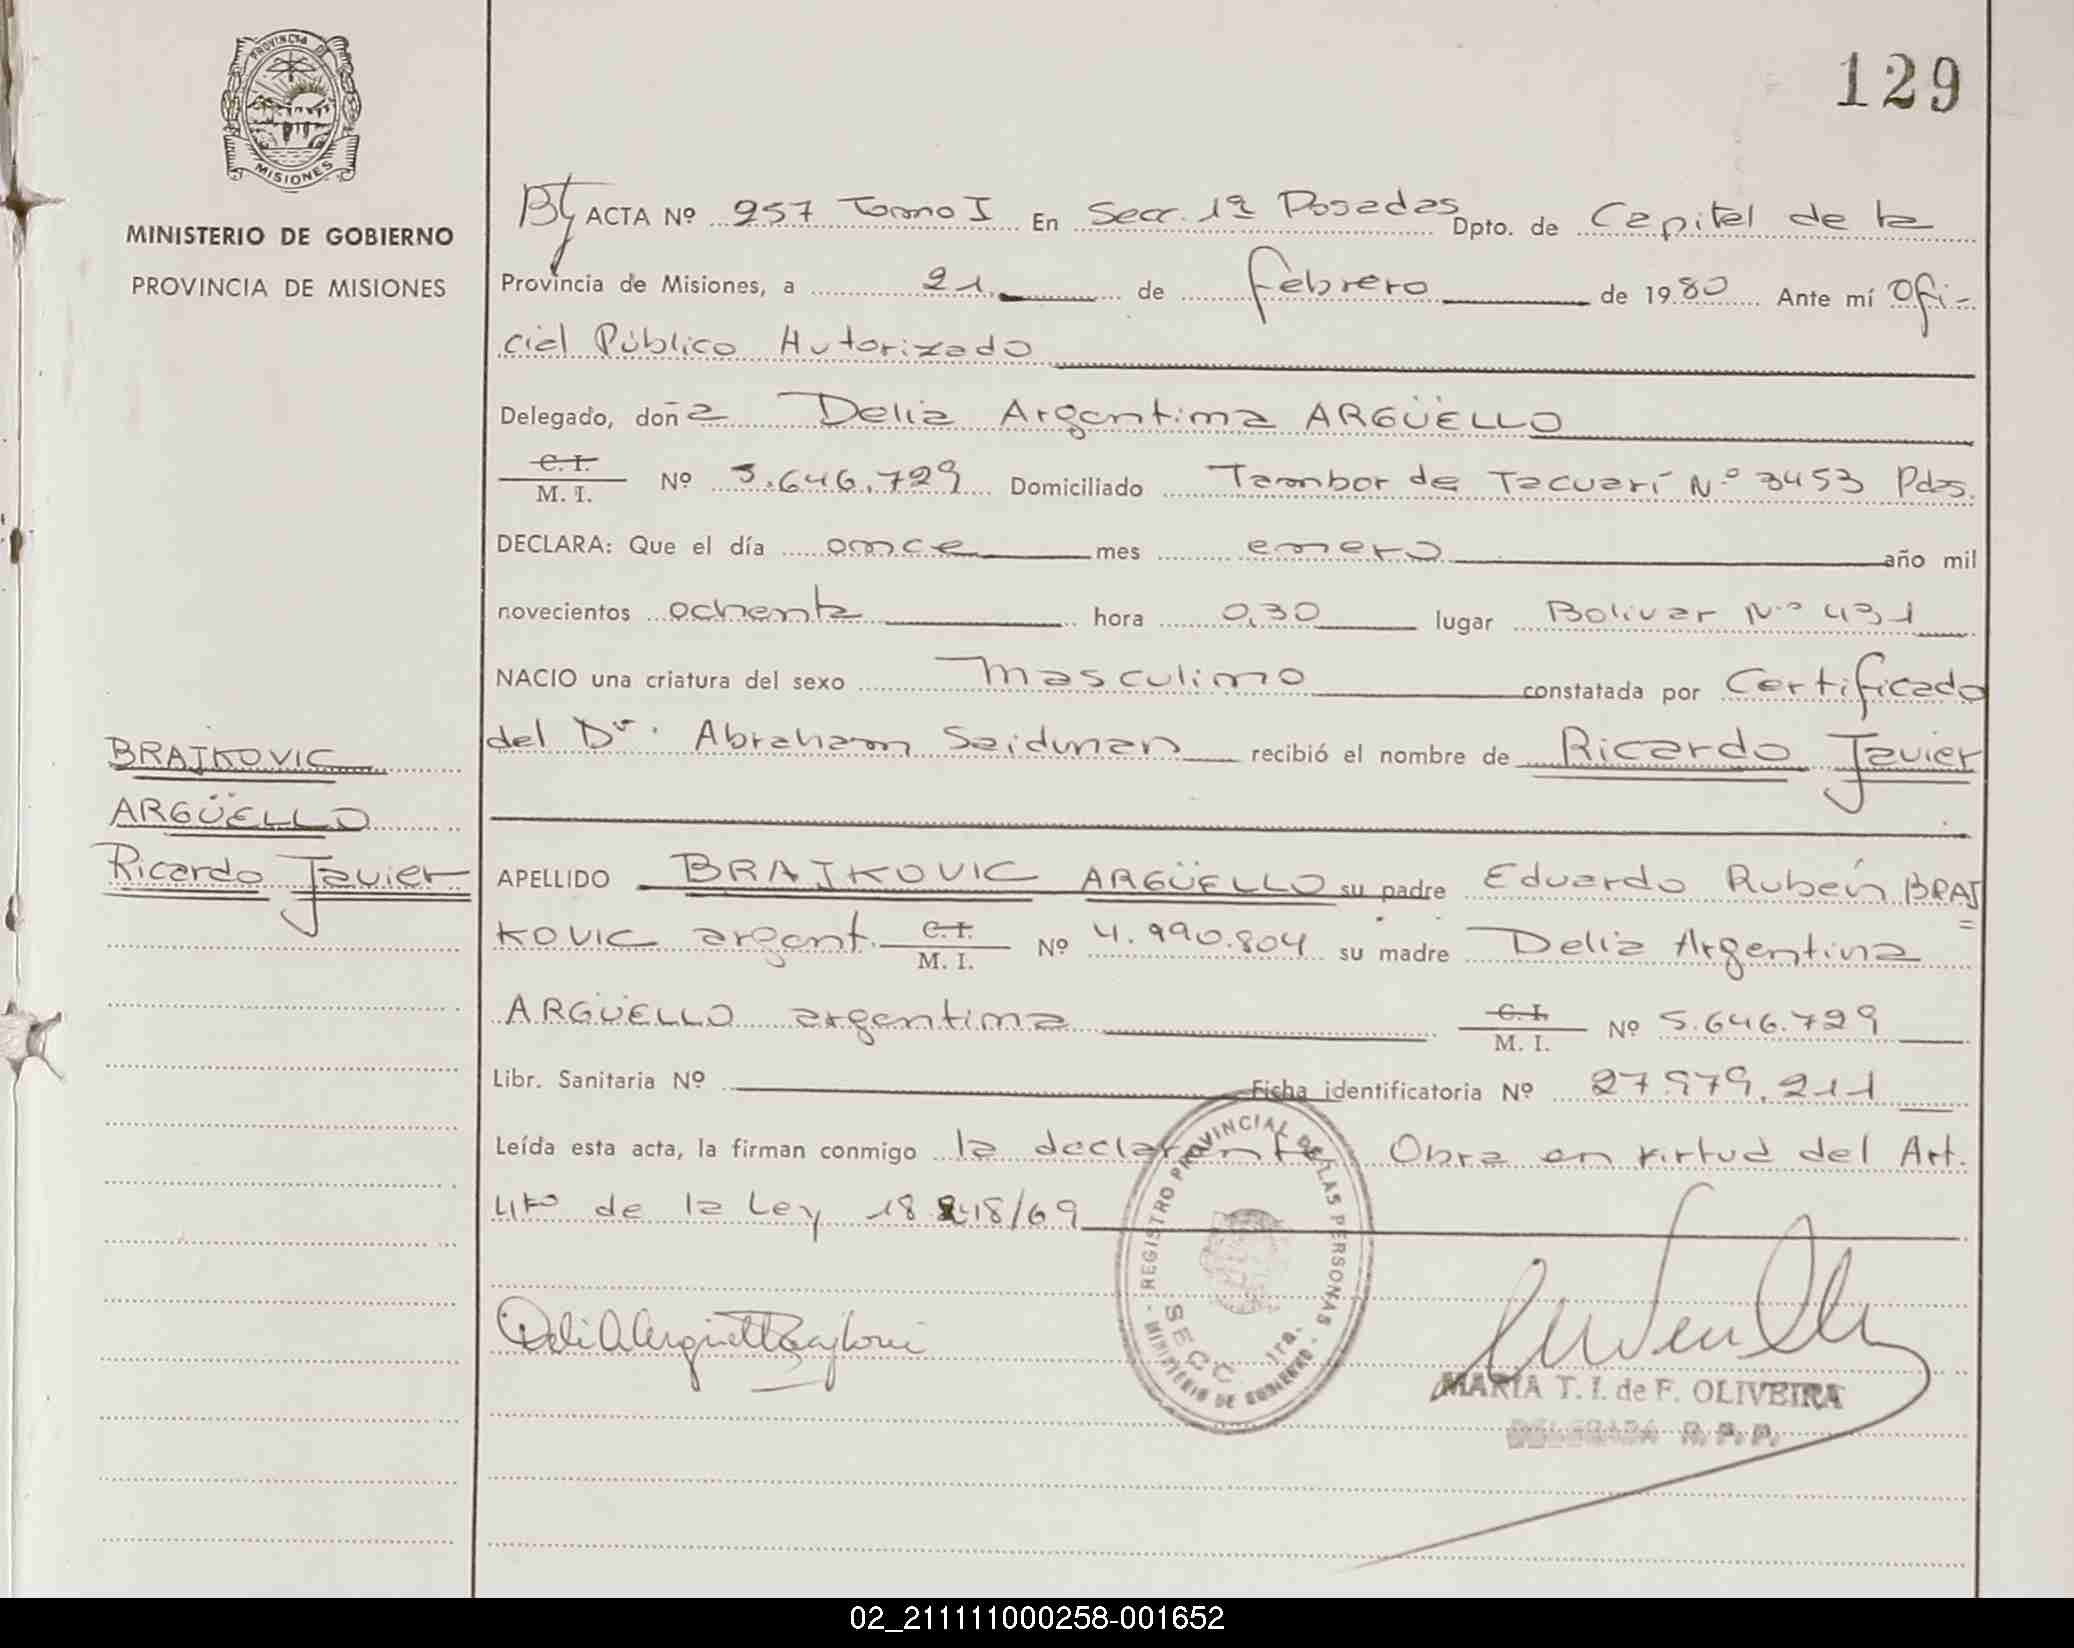 129
PROVINCIA DE
MISIONES
MINISTERIO DE GOBIERNO
PROVINCIA DE MISIONES
ACTA Nº 257 Tomo I En Secc. 1ª Posadas Dpto. de Capital de la
Provincia de Misiones, a 21 de febrero de 1980 Ante mí Ofi-
cial Público Autorizado
Delegado, doña Delia Argentina ARGÜELLO
C. I.
M. I. Nº 5.646.729 Domiciliado Tambor de Tacuarí Nº 3453 Pdas.
DECLARA: Que el día once mes enero año mil
novecientos ochenta hora 0,30 lugar Bolivar Nº 431
NACIO una criatura del sexo masculino constatada por Certificado
del Dr. Abraham Seidunan recibió el nombre de Ricardo Javier
BRAJKOVIC
ARGÜELLO
Ricardo Javier
APELLIDO BRAJKOVIC ARGÜELLO su padre Eduardo Rubén BRAJ
=
KOVIC argent. C. I.
M. I. Nº 4.990.804 su madre Delia Argentina
ARGÜELLO argentina C. I.
M. I. Nº 5.646.729
Libr. Sanitaria Nº Ficha identificatoria Nº 27.979.211
Leída esta acta, la firman conmigo la declarante. Obra en virtud del Art.
4to de la Ley 18.248/69
- REGISTRO PROVINCIAL DE LAS PERSONAS -
MINISTERIO DE GOBIERNO
SECC 1ra.
MARIA T. I. de F. OLIVEIRA
DELEGADA R. P. P.
02_211111000258-001652